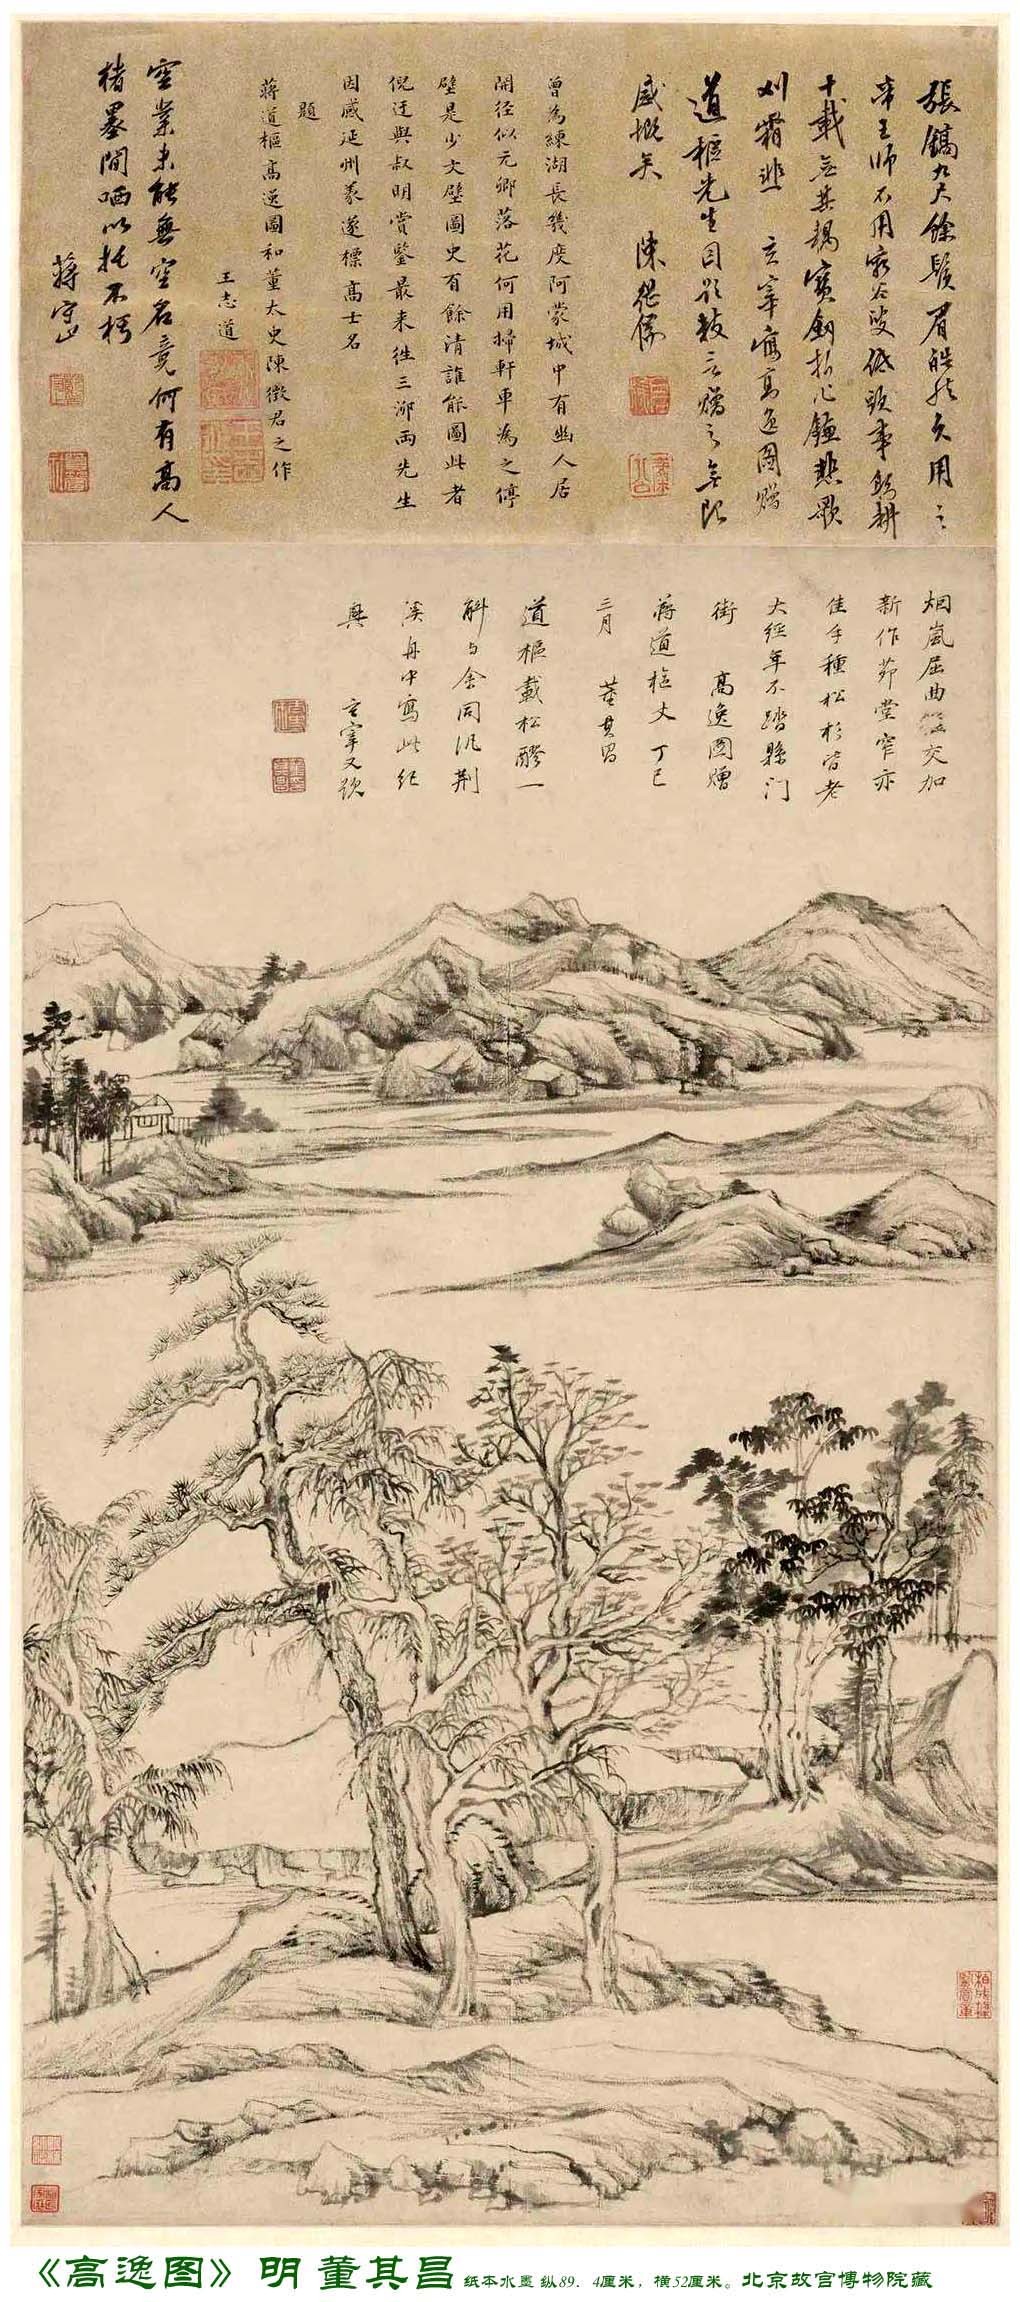 張鎬九尺餘鬚眉皓能久用之
帝王師不用窮谷叟低頭事躬耕
十載無其耦寶劍拆作鐮悲歌
刈霜韭 玄宰寫高逸圖贈
道樞先生因題數言贈之無限
感慨矣 陳繼儒
曾為練湖長幾度阿蒙城中有幽人居
開徑似元卿落花何用掃軒車為之停
壁是少文壁圖史有餘清誰能圖此者
倪迂與叔明賞鑒最來往三泖兩先生
因感延州義遂標高士名
題
蔣道樞高逸圖和董太史陳徵君之作
王志道
空業未能無空名竟何有高人
楮墨間哂以托不朽
蔣守止
烟嵐屈曲徑交加
新作茆堂窄亦
佳手種松杉皆老
大經年不踏縣門
街 高逸圖贈
蔣道樞丈 丁巳
三月 董其昌
道樞載松醪一
斛與余同汎荆
溪舟中寫此紀
興 玄宰又題
《高逸图》 明 董其昌 纸本水墨 纵89．4厘米，横52厘米。北京故宫博物院藏